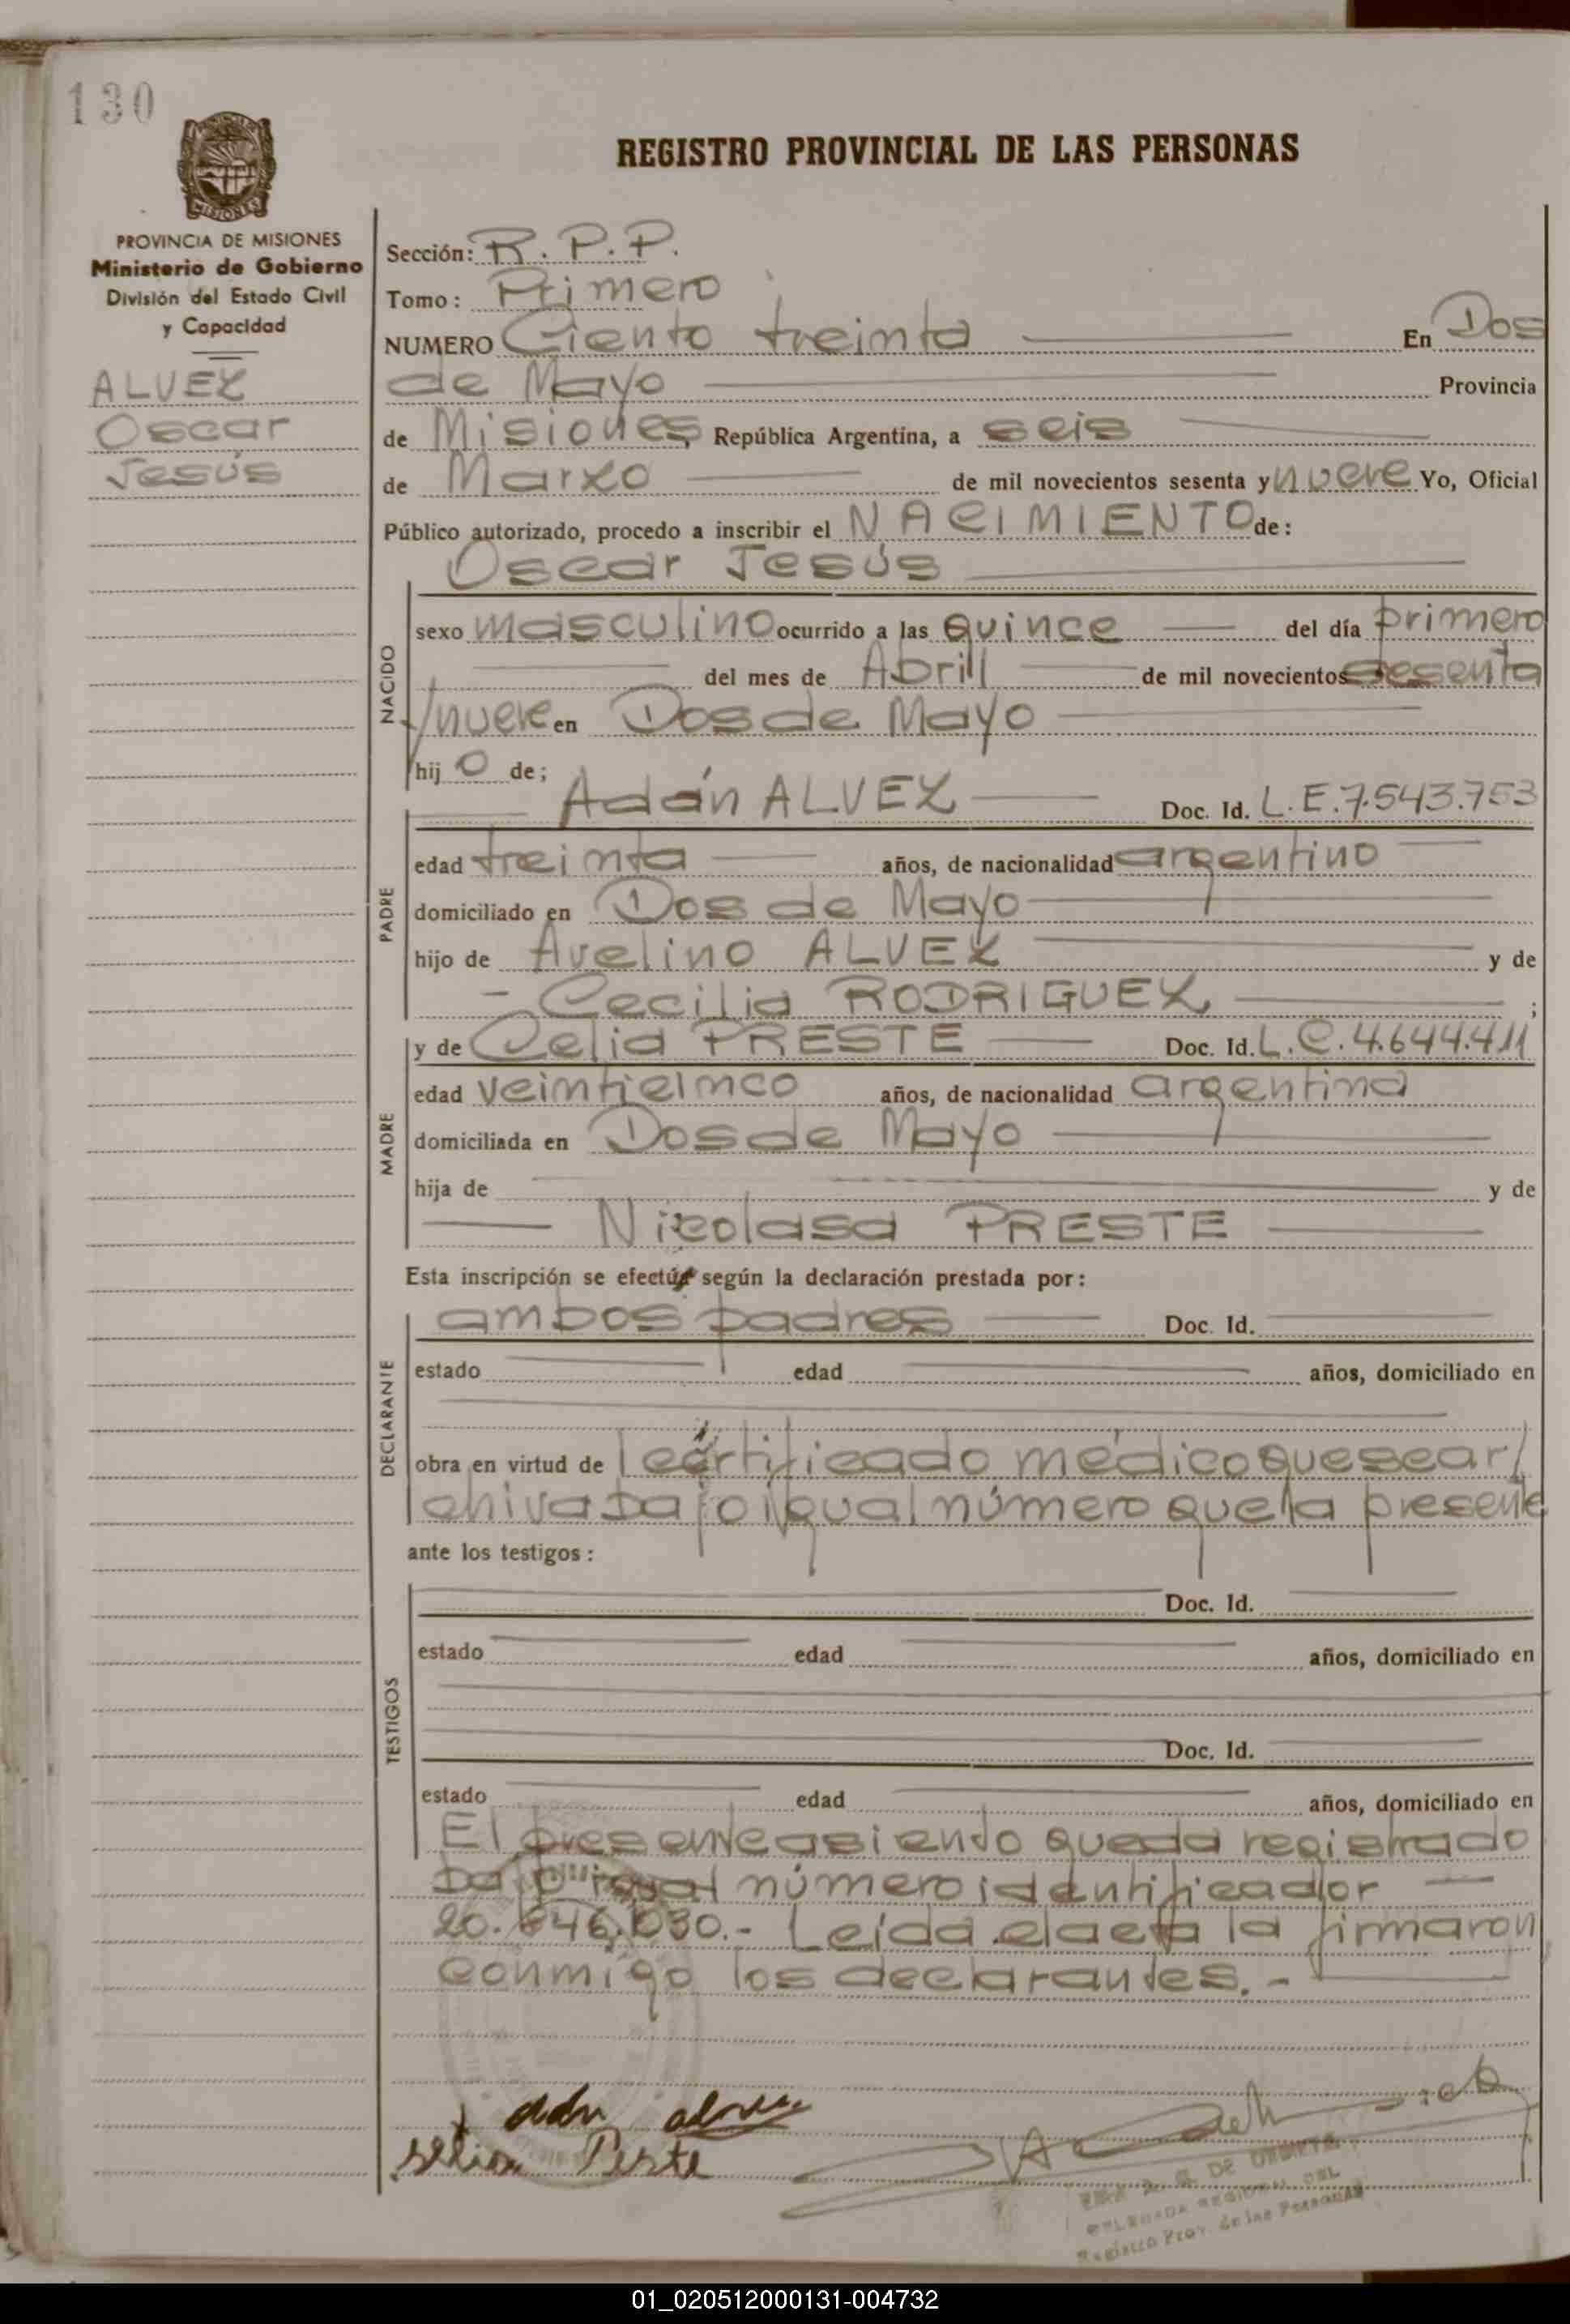 130
REGISTRO PROVINCIAL DE LAS PERSONAS
MISIONES
PROVINCIA DE MISIONES
Ministerio de Gobierno
División del Estado Civil
y Capacidad
ALVEZ
Oscar
Jesús
Sección: R. P. P.
Tomo: Primero
NUMERO Ciento treinta En Dos
de Mayo Provincia
de Misiones, República Argentina, a seis
de Marzo de mil novecientos sesenta y nueve Yo, Oficial
Público autorizado, procedo a inscribir el NACIMIENTO de:
Oscar Jesús
NACIDO
sexo masculino ocurrido a las quince del día primero
del mes de Abril de mil novecientos sesenta
y nueve en Dos de Mayo
hijo de;
Adán ALVEZ Doc. Id. L.E. 7.543.753
PADRE
edad treinta años, de nacionalidad argentino
domiciliado en Dos de Mayo
hijo de Avelino ALVEZ y de
Cecilia RODRIGUEZ ;
y de Celia PRESTE Doc. Id. L.C. 4.644.411
MADRE
edad veinticinco años, de nacionalidad argentina
domiciliada en Dos de Mayo
hija de y de
Nicolasa PRESTE
Esta inscripción se efectúa según la declaración prestada por:
ambos padres Doc. Id.
DECLARANTE
estado edad años, domiciliado en
obra en virtud de l certificado médico que se ar/
chiva bajo igual número que la presente
ante los testigos:
Doc. Id.
TESTIGOS
estado edad años, domiciliado en
Doc. Id.
estado edad años, domiciliado en
El presente asiento queda registrado
bajo igual número identificador
20.646.030.- Leída el acta la firmaron
conmigo los declarantes.-
adn alvez
selia Peste
DELEGADA REGIONAL DEL
Registro Prov. de las Personas
01_020512000131-004732